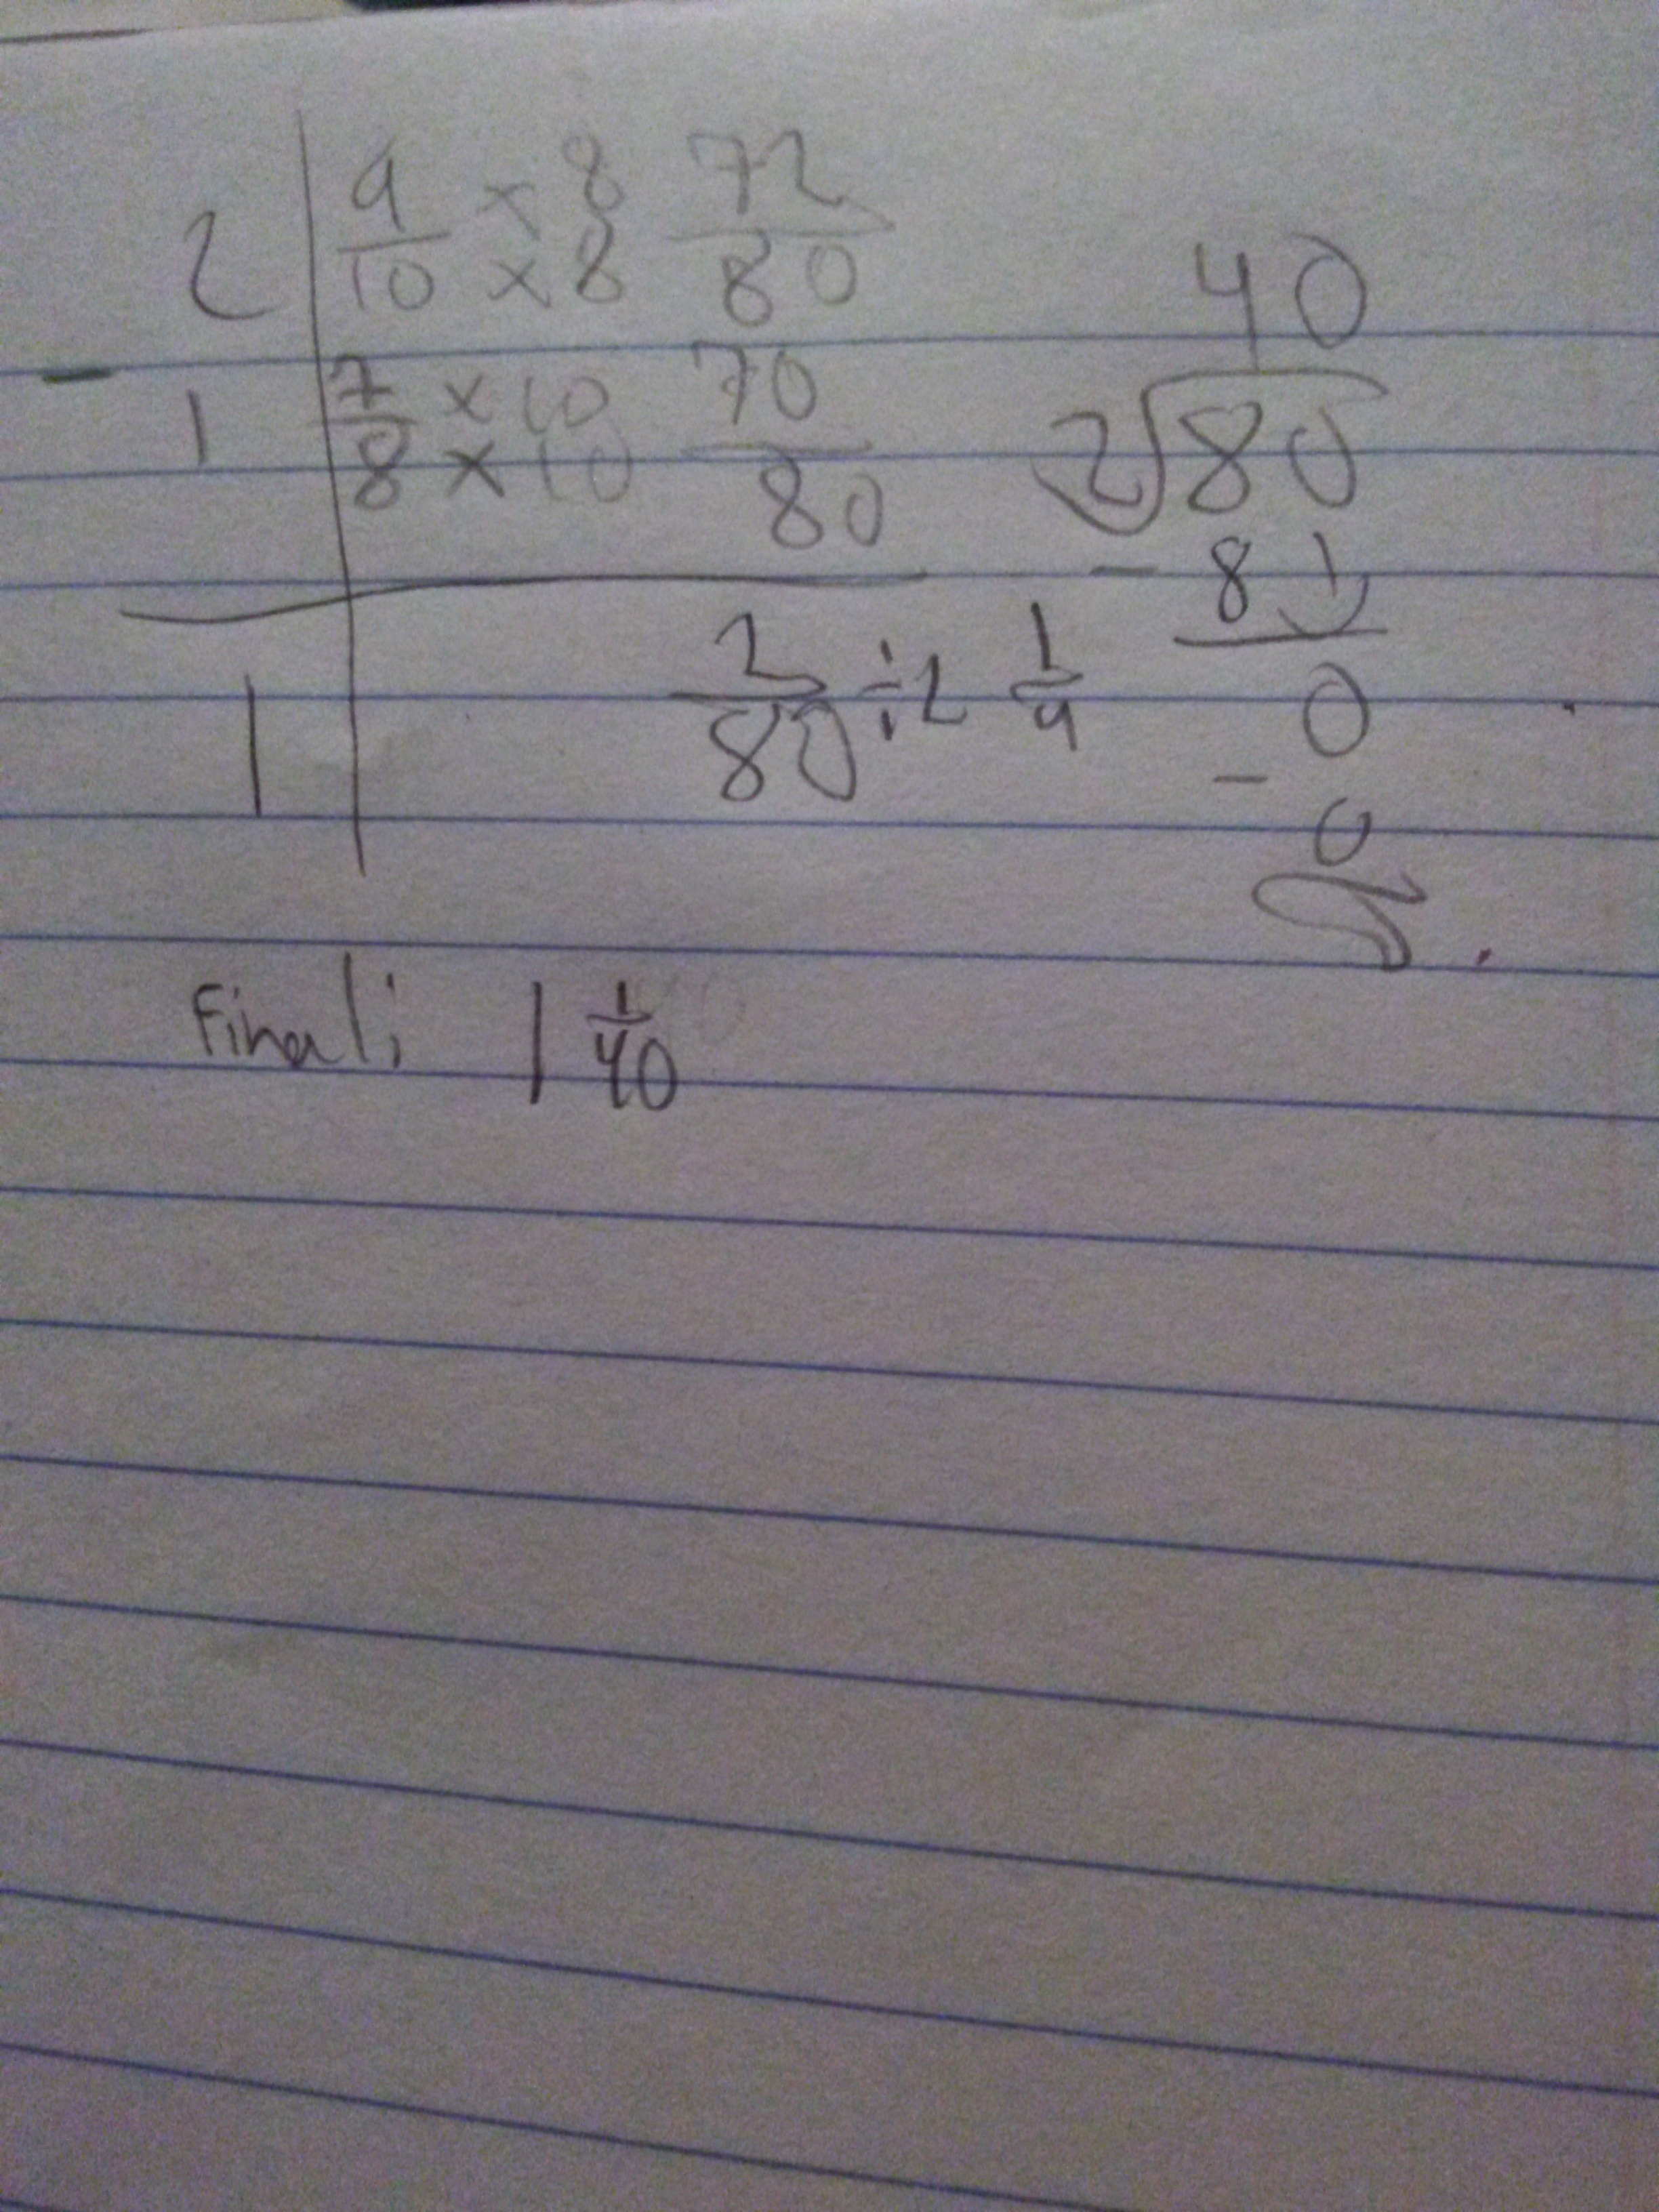 2 | 9/10 × 8 / × 8 72/80
- 1 | 7/8 × 10 / × 10 70/80
1 | 2/80 ÷ 2 1/4
40
2 80
- 8
0
- 0
0
Final: 1 1/40